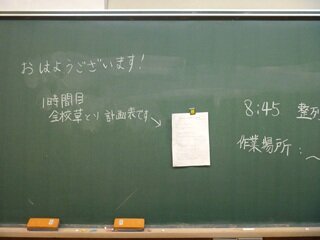 おはようございます!
1時間目
全校草とり 計画表です
8:45 整列
作業場所:~